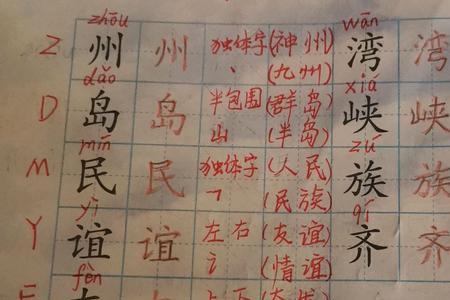 zhōu wān
Z 州 州 独体字 (神州) 湾 湾
丶 (九州)
dǎo xiá
D 岛 岛 半包围 (群岛) 峡 峡
山 (半岛)
mín zú
M 民 民 独体字 (人民) 族 族
乛 (民族)
yì qí
Y 谊 谊 左右 (友谊) 齐 齐
讠 (情谊)
fèn
上下